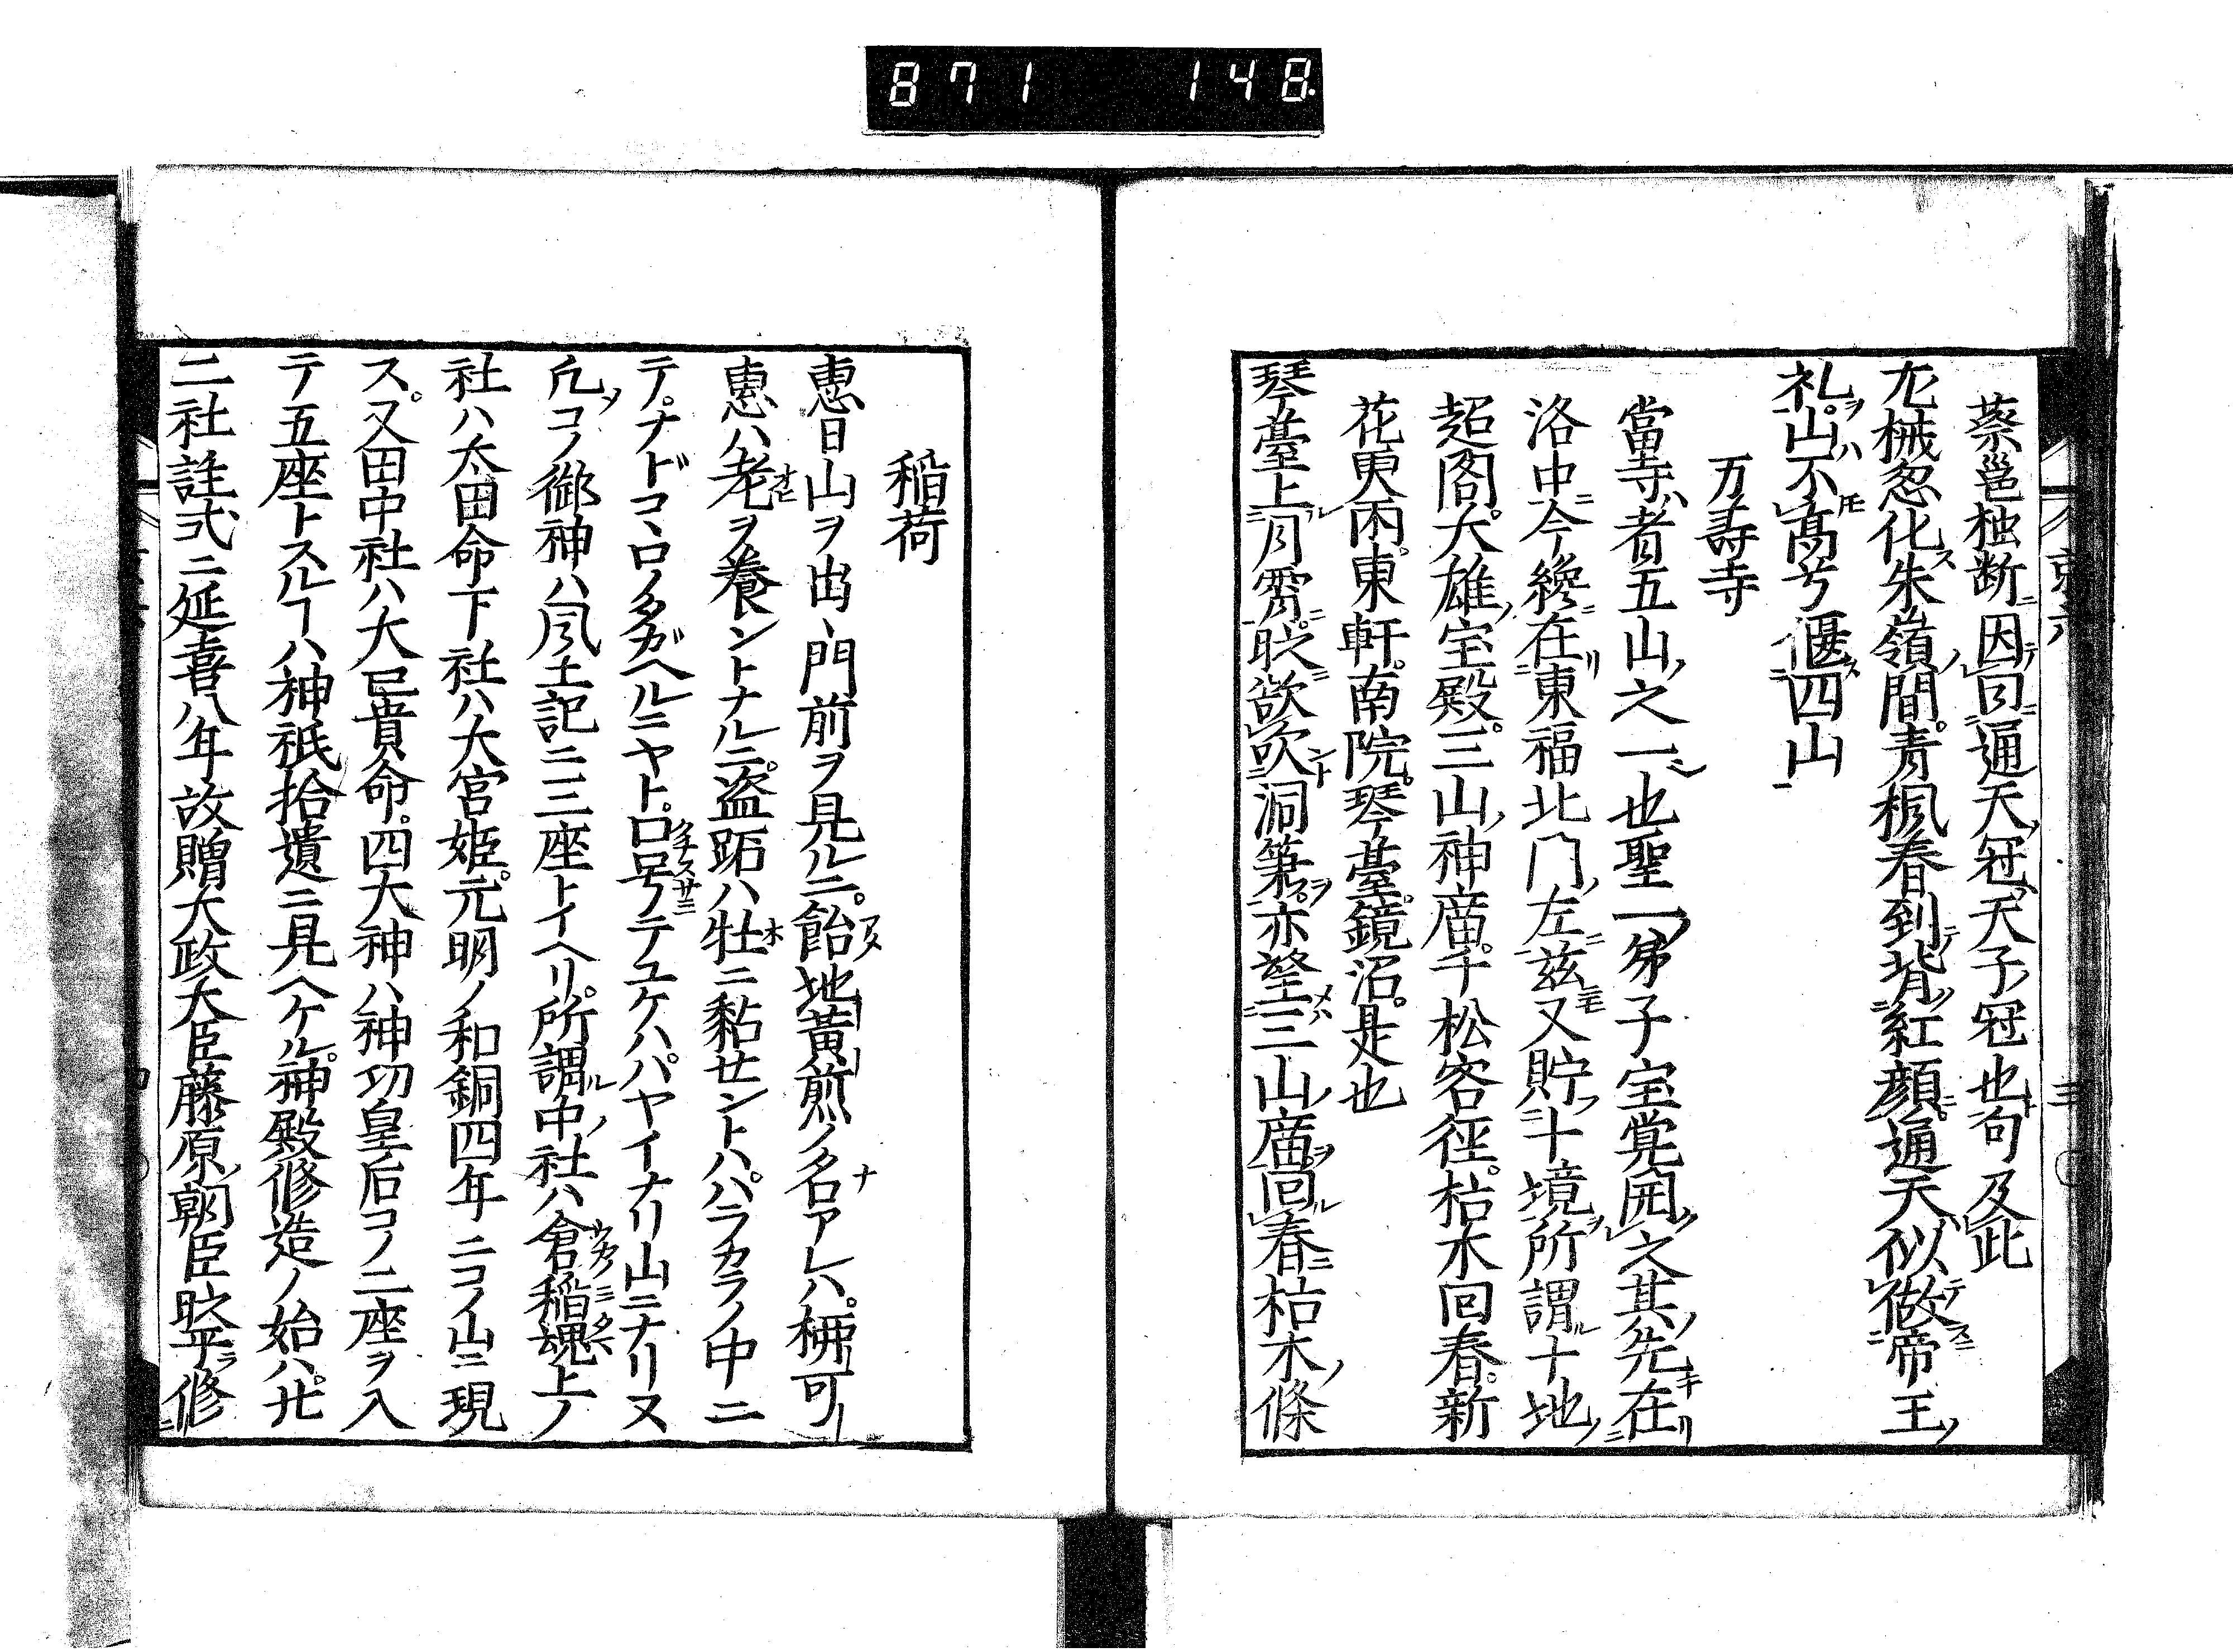 871 148
蔡邕独断ニ因テ曰通天冠ハ天子ノ冠也ト句及此
尤械忽化ス朱嶺ノ間。青楓春到テ背ク紅顔ニ。通天ハ似做テ帝王ノ
礼ヲ。山ハ不髙兮偃ス四山
万壽寺
當寺ハ者五山ノ之一ニシ也聖一ノ弟子宝覚開ク之其ノ先キ在リ
洛中ニ今纔ニ在リ東福北门ノ左ニ茲ニモ又貯フ十境ヲ所謂ル十地ノ
超閣。大雄ノ宝殿。三山ノ神庿。千松客径。枯木回春。新
花更雨。東軒。南院。琴臺。鏡沼。是也
琴臺上ル月霄ニ。吹ント洞簫ヲ。亦登三山ノ庿ヲ。回ル春ニ枯木ノ條
稲荷
恵日山ヲ出、門前ヲ見ルニ。飴地黄煎ノ名アレハ。柳可ー
恵ハ老ヲ養ントナルニ。盗跖ハ牡ニ黏セントハ。ハラカラノ中ニ
テ。ナドコヽロノタガヘルニヤト。口号テユケハ。ハヤイナリ山ニナリヌ
凡ソコノ御神ハ風土記ニ三座トイヘリ。所謂ル中ノ社ハ倉稲魂上ノ
社ハ太田命下社ハ大宮姫。元明ノ和銅四年ニコノ山ニ現
ス。又田中社ハ大己貴命。四大神ハ神功皇后コノ二座ヲ入
テ五座トスルヿハ神祇拾遺ニ見ヘケル。神殿修造ノ始ハ。廿
二社註式ニ延喜八年故贈大政大臣藤原ノ朝臣時平ラ修